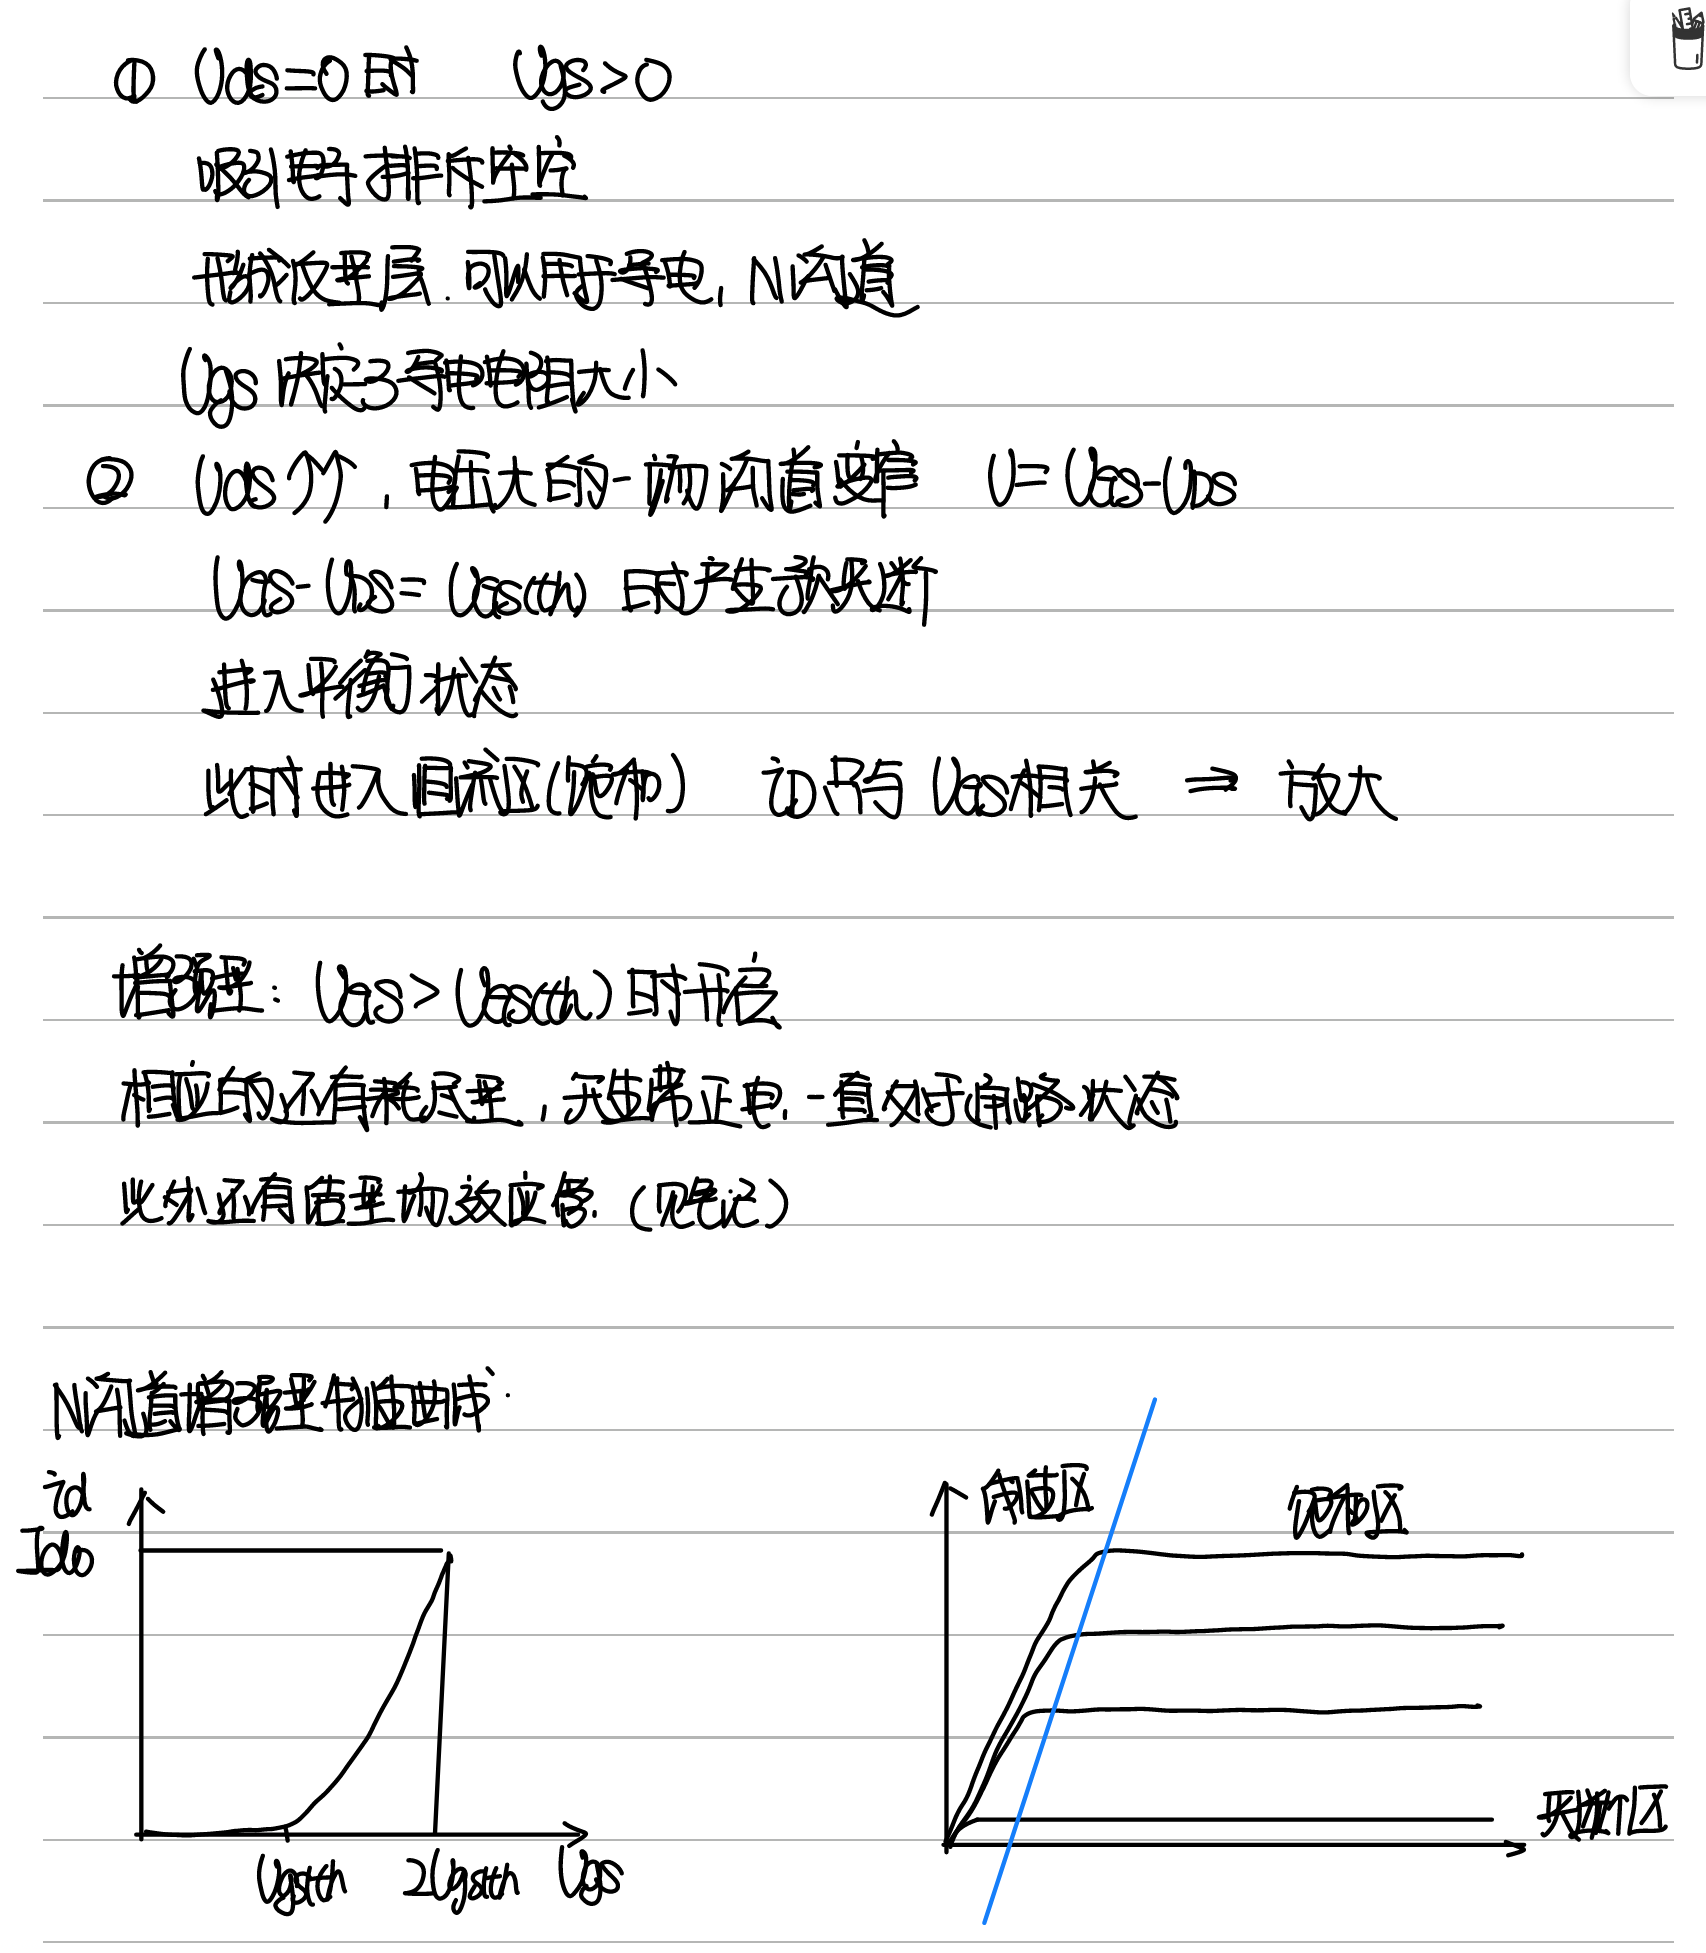 ① Uds=0时 Ugs>0
吸引电子排斥空空
形成反型层.可以用于导电,N沟道
Ugs决定了导电电阻大小
② Uds↑↑,电压大的一场沟道变窄 U=UGS-UDS
UGS-UDS=UGS(th) 时产生预夹断
进入平衡状态
此时进入恒流区(饱和) iD只与UGS相关 ⇒ 放大
增强型: UGS>UGS(th)时开启
相应的还有耗尽型,天生带正电.一直处于通路状态
此外还有结型场效应管.(见笔记)
N沟道增强型特性曲线.
id
Ido
Ugsth
2Ugsth
Ugs
可变区
饱和区
夹断区